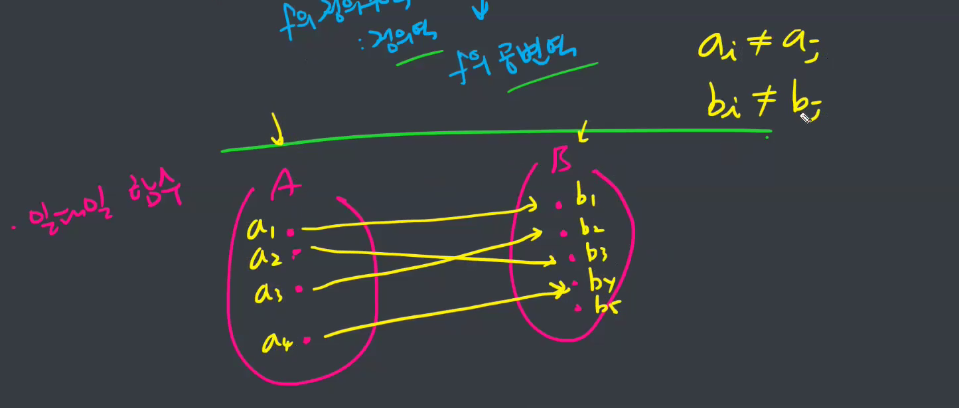 f의 정의
: 정의역
f의 공변역
aᵢ ≠ aⱼ
bᵢ ≠ bⱼ
· 일대일 함수
A
B
a₁
a₂
a₃
a₄
b₁
b₂
b₃
b₄
b₅